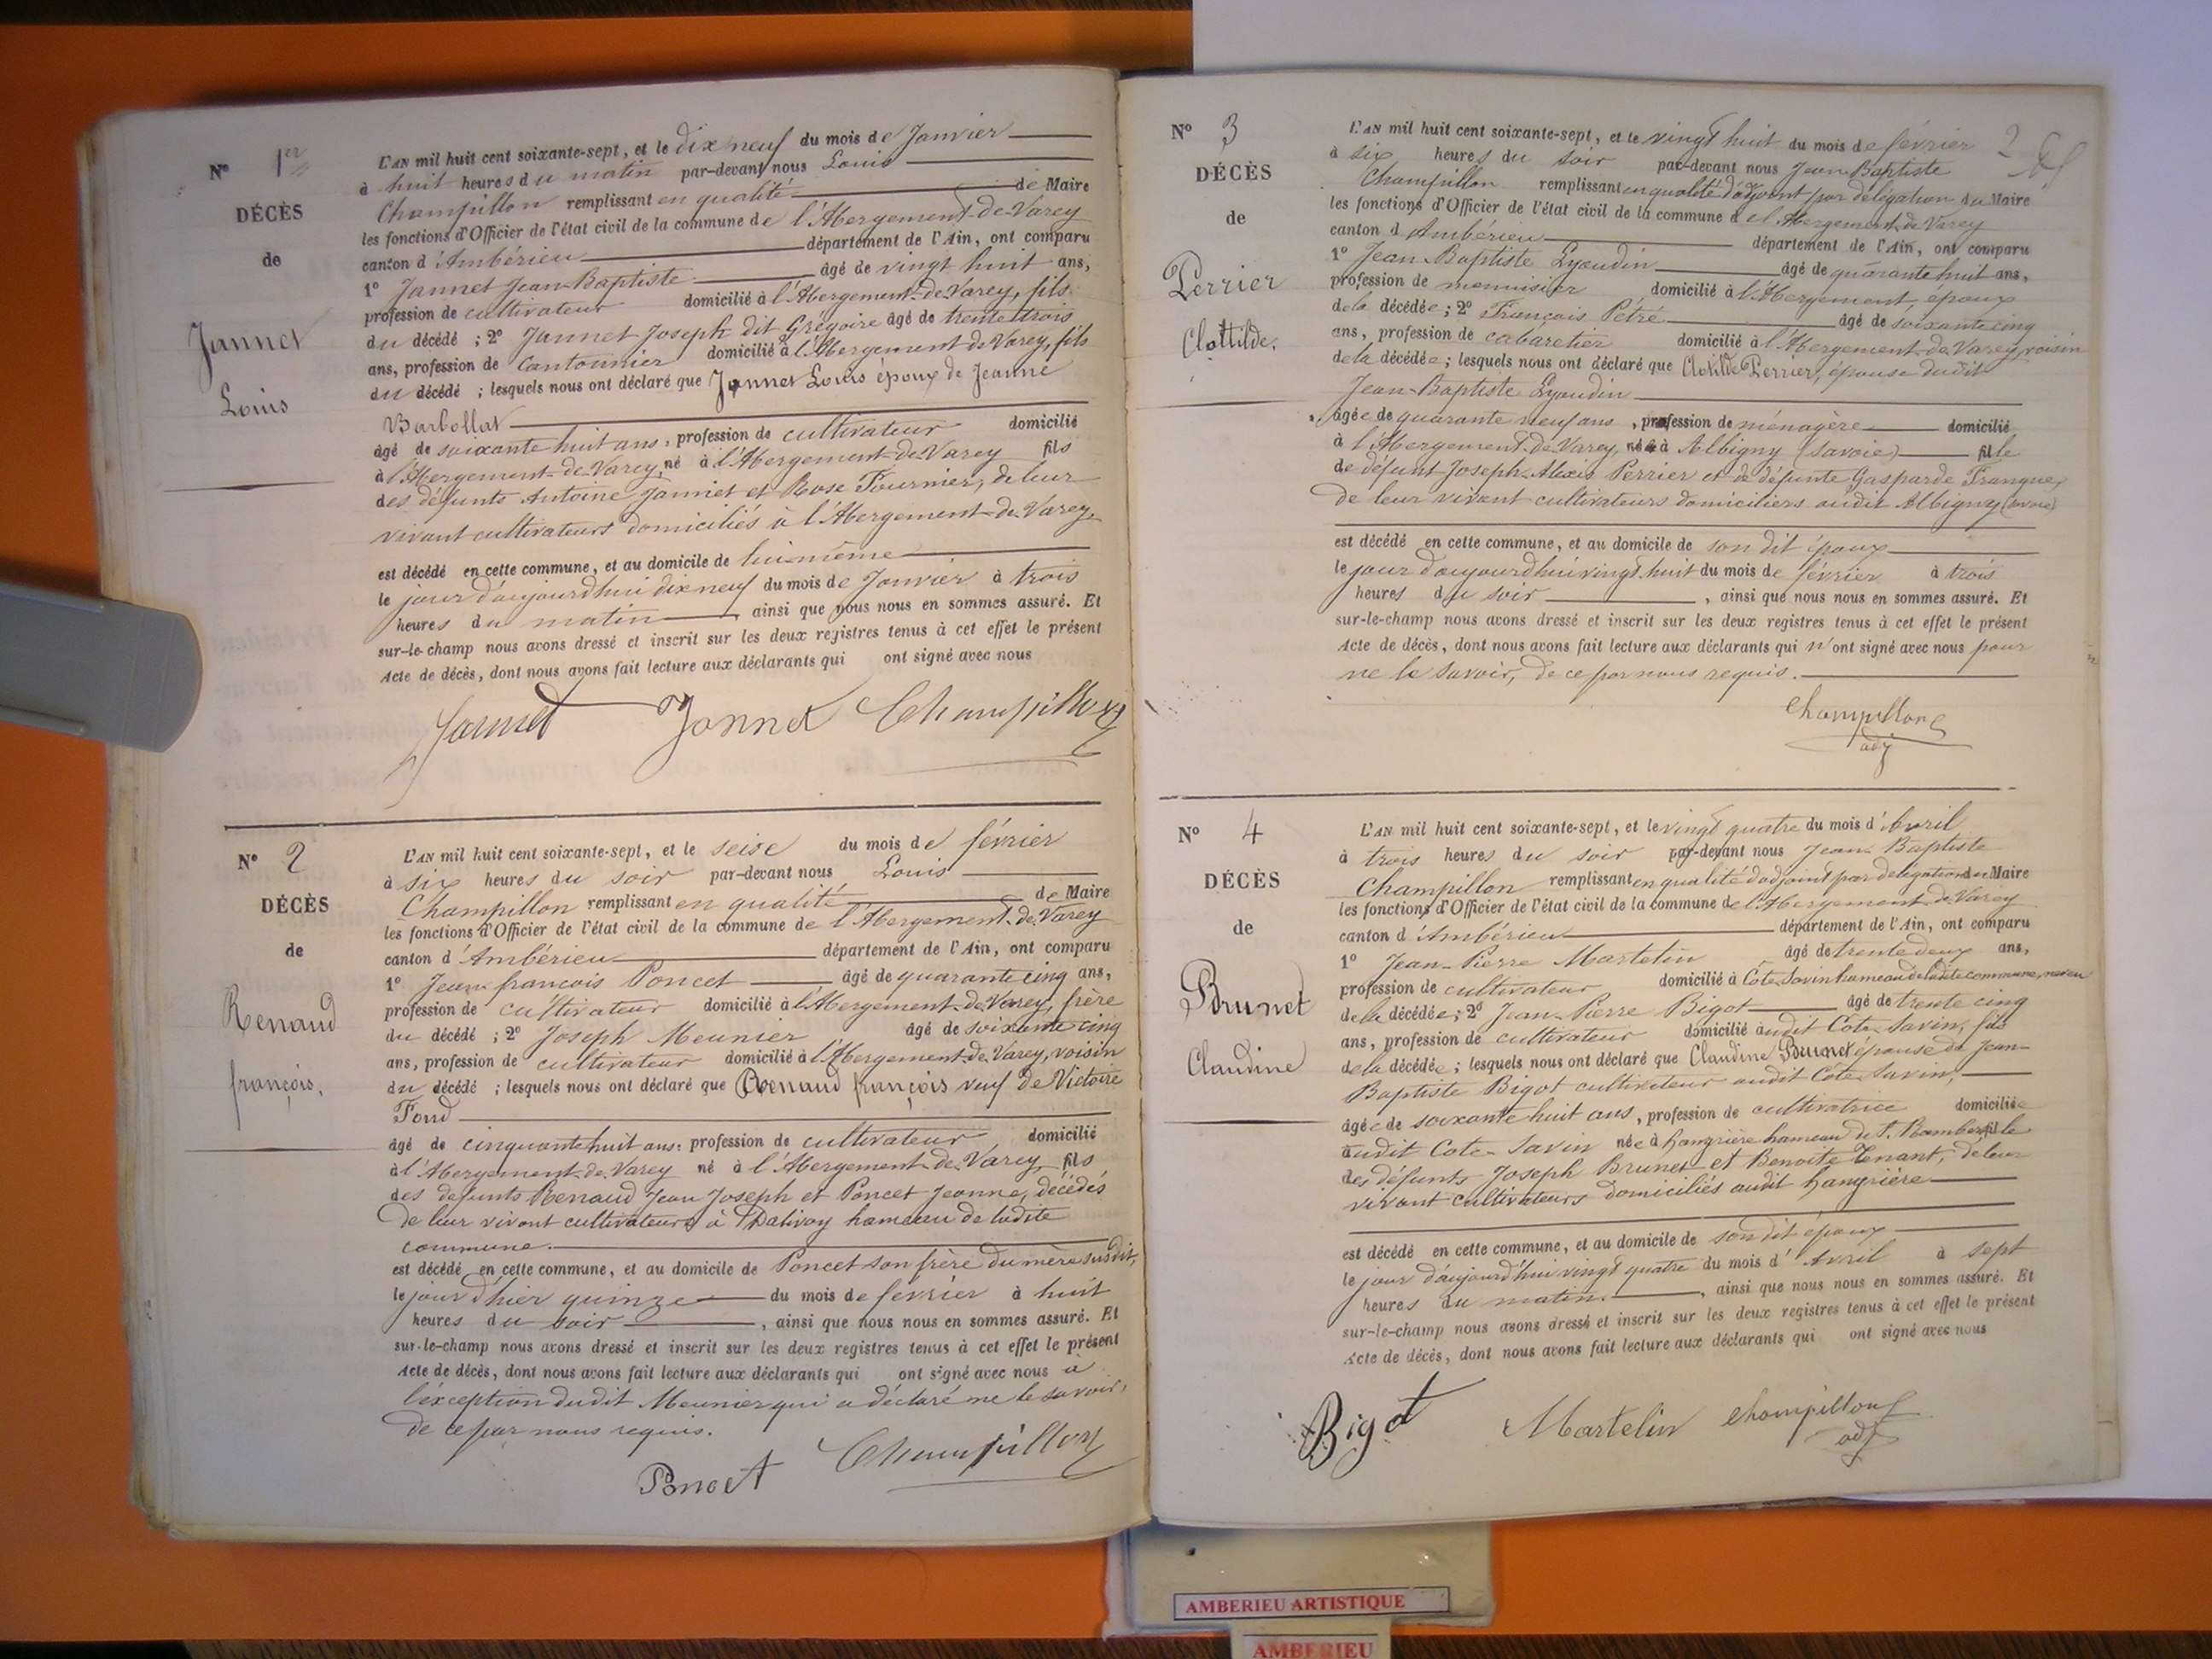 N° 1er
DÉCÈS
de
Jannet
Louis
L'AN mil huit cent soixante-sept, et le dix neuf du mois de Janvier
à huit heures du matin par-devant nous Louis
Champillon remplissant en qualité de Maire
les fonctions d'Officier de l'état civil de la commune de l'Abergement-de-Varey
canton d'Ambérieu département de l'Ain, ont comparu
1° Jannet Jean-Baptiste âgé de vingt huit ans,
profession de cultivateur domicilié à l'Abergement-de-Varey, fils
du décédé ; 2° Jannet Joseph dit Grégoire âgé de trente trois
ans, profession de Cantonnier domicilié à l'Abergement de Varey, fils
du décédé ; lesquels nous ont déclaré que Jannet Louis époux de Jeanne
Barbollat
âgé de soixante huit ans, profession de cultivateur domicilié
à l'Abergement-de-Varey, né à l'Abergement-de-Varey fils
des défunts Antoine Jannet et Rose Fournier, de leur
vivant cultivateurs domiciliés à l'Abergement-de-Varey,
est décédé en cette commune, et au domicile de lui même
le jour d'aujourd'hui dix neuf du mois de Janvier à trois
heures du matin, ainsi que nous nous en sommes assuré. Et
sur-le-champ nous avons dressé et inscrit sur les deux registres tenus à cet effet le présent
Acte de décès, dont nous avons fait lecture aux déclarants qui ont signé avec nous
Jannet Jannet Champillon
N° 2
DÉCÈS
de
Renaud
françois.
L'AN mil huit cent soixante-sept, et le seise du mois de février
à six heures du soir par-devant nous Louis
Champillon remplissant en qualité de Maire
les fonctions d'Officier de l'état civil de la commune de l'Abergement-de-Varey
canton d'Ambérieu département de l'Ain, ont comparu
1° Jean françois Poncet âgé de quarante cinq ans,
profession de cultivateur domicilié à l'Abergement-de-Varey, frère
du décédé ; 2° Joseph Meunier âgé de soixante cinq
ans, profession de cultivateur domicilié à l'Abergement-de-Varey, voisin
du décédé ; lesquels nous ont déclaré que Renaud françois veuf de Victoire
Fond
âgé de cinquante huit ans, profession de cultivateur domicilié
à l'Abergement-de-Varey né à l'Abergement-de-Varey fils
des défunts Renaud Jean Joseph et Poncet Jeanne, décédés
de leur vivant cultivateurs à Dalivoy hameau de ladite
commune.
est décédé en cette commune, et au domicile de Poncet son frère du mère susdit,
le jour d'hier quinze du mois de février à huit
heures du soir, ainsi que nous nous en sommes assuré. Et
sur-le-champ nous avons dressé et inscrit sur les deux registres tenus à cet effet le présent
Acte de décès, dont nous avons fait lecture aux déclarants qui ont signé avec nous à
l'exception dudit Meunier qui a déclaré ne le savoir,
de ce par nous requis.
Poncet Champillon
2
N° 3
DÉCÈS
de
Perrier
Clottilde.
L'AN mil huit cent soixante-sept, et le vingt huit du mois de février
à six heures du soir par-devant nous Jean-Baptiste
Champillon remplissant en qualité d'adjoint par délégation du Maire
les fonctions d'Officier de l'état civil de la commune de l'Abergement-de-Varey
canton d'Ambérieu département de l'Ain, ont comparu
1° Jean-Baptiste Lyaudin âgé de quarante huit ans,
profession de menuisier domicilié à l'Abergement, époux
de la décédée ; 2° François Pétré âgé de soixante cinq
ans, profession de cabaretier domicilié à l'Abergement-de-Varey, voisin
de la décédée ; lesquels nous ont déclaré que Clotilde Perrier, épouse dudit
Jean-Baptiste Lyaudin
âgée de quarante neuf ans, profession de ménagère domicilié
à l'Abergement-de-Varey, née à Albigny (Savoie) fille
de défunt Joseph-Alexis Perrier et de défunte Gasparde Franque,
de leur vivant cultivateurs domiciliers audit Albigny (Savoie)
est décédé en cette commune, et au domicile de son dit époux
le jour d'aujourd'hui vingt huit du mois de février à trois
heures du soir, ainsi que nous nous en sommes assuré. Et
sur-le-champ nous avons dressé et inscrit sur les deux registres tenus à cet effet le présent
Acte de décès, dont nous avons fait lecture aux déclarants qui n'ont signé avec nous pour
ne le savoir, de ce par nous requis.
Champillon
adj
N° 4
DÉCÈS
de
Brunet
Claudine
L'AN mil huit cent soixante-sept, et le vingt quatre du mois d'Avril
à trois heures du soir par-devant nous Jean-Baptiste
Champillon remplissant en qualité d'adjoint par délégation du Maire
les fonctions d'Officier de l'état civil de la commune de l'Abergement-de-Varey
canton d'Ambérieu département de l'Ain, ont comparu
1° Jean-Pierre Martelin âgé de trente deux ans,
profession de cultivateur domicilié à Côte-Savin hameau de ladite commune, neveu
de la décédée ; 2° Jean-Pierre Bigot âgé de trente cinq
ans, profession de cultivateur domicilié audit Côte-Savin, fils
de la décédée ; lesquels nous ont déclaré que Claudine Brunet épouse de Jean-
Baptiste Bigot cultivateur audit Cote-Savin,
âgée de soixante huit ans, profession de cultivatrice domiciliée
audit Cote-Savin née à hangrière hameau de St. Rambert fille
des défunts Joseph Brunet et Benoite Tenant, de leur
vivant cultivateurs domiciliés audit hangrière
est décédé en cette commune, et au domicile de son dit époux
le jour d'aujourd'hui vingt quatre du mois d'Avril à sept
heures du matin, ainsi que nous nous en sommes assuré. Et
sur-le-champ nous avons dressé et inscrit sur les deux registres tenus à cet effet le présent
Acte de décès, dont nous avons fait lecture aux déclarants qui ont signé avec nous
Bigot Martelin Champillon
adj
AMBERIEU ARTISTIQUE
AMBERIEU